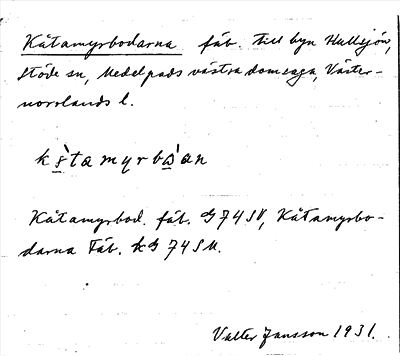 Kåtamyrbodarna fäb. till byn Hullsjön,
Stöde sn, Medelpads västra domsaga, Väster-
norrlands l.
Kåtamyrbod. fäb. G 74 SV, Kåtamyrbo-
darna Fäb. kG 74 SU.
Valter Jansson 1931.